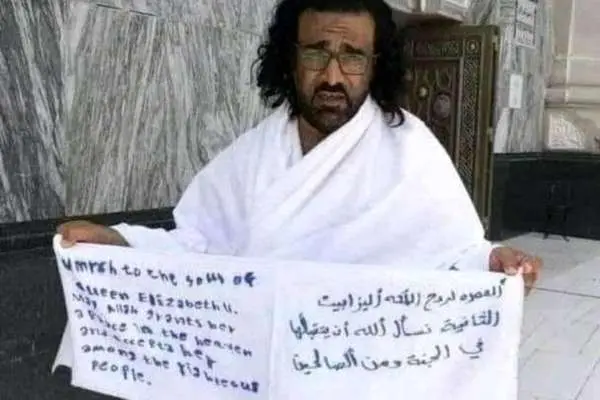 Umrah to the soul of
Queen Elizabeth II.
May Allah grants her
a Place in the heaven
and accepts her
among the righteous
People.
العمره لروح الملكه اليزابيث
الثانية نسأل الله أن يتقبلها
في الجنة ومن الصالحين